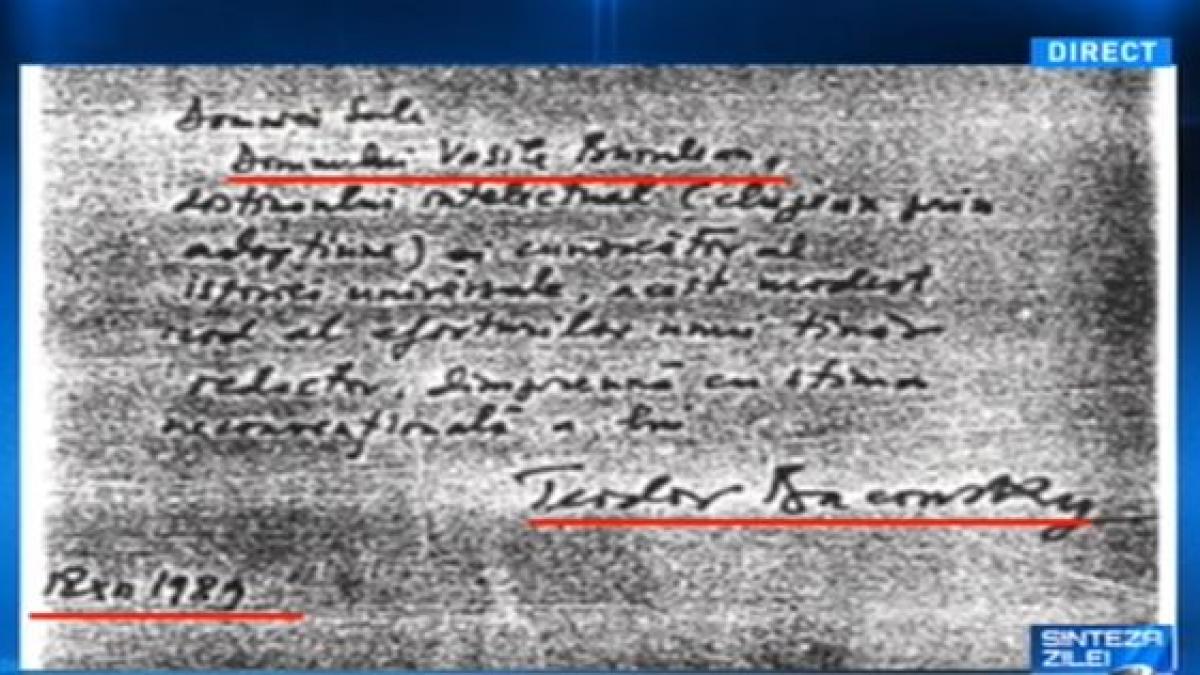 DIRECT
Domniei Sale
Domnului Vasile
distinsului intelectual (clujean prin
adopţiune) şi cunoscător al
istoriei universale, acest modest
rod al eforturilor unui tînăr
redactor, împreună cu stima
neconvenţională a lui
Teodor Baconsky
1989
SINTEZA
ZILEI